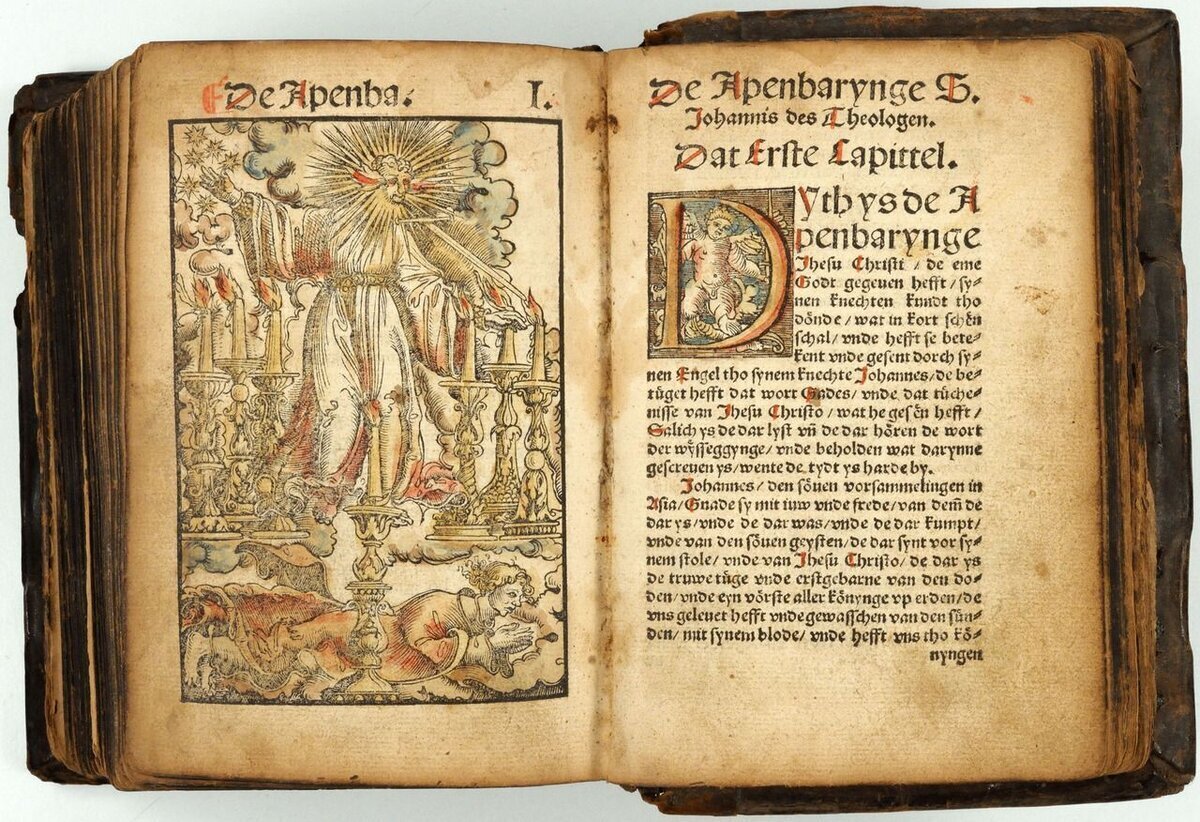 De Apenba. I.
De Apenbarynge S.
Johannis des Theologen.
Dat Erste Capittel.
DYth ys de A
penbarynge
Jhesu Christi / de eme
Godt gegeuen hefft / sy⸗
nen knechten kundt tho
dönde / wat in kort schên
schal / vnde hefft se bete⸗
kent vnde gesent dorch sy⸗
nen Engel tho synem knechte Johannes / de be⸗
tüget hefft dat wort Gades / vnde dat tüche⸗
nisse van Jhesu Christo / wat he gesên hefft /
Salich ys de dar lyst vñ de dar hören de wort
der wysseggynge / vnde beholden wat darynne
gescreuen ys / wente de tydt ys harde by.
Johannes / den söuen vorsammelingen in
Asia / Gnade sy mit iuw vnde frede / van dem̃ de
dar ys / vnde de dar was / vnde de dar kumpt /
vnde van den söuen geysten / de dar synt vor sy⸗
nem stole / vnde van Jhesu Christo / de dar ys
de truwe tüge vnde erstgebarne van den do⸗
den / vnde eyn vörste aller könynge vp erden / de
vns geleuet hefft vnde gewasschen van den sün⸗
den / mit synem blode / vnde hefft vns tho kö⸗
nyngen